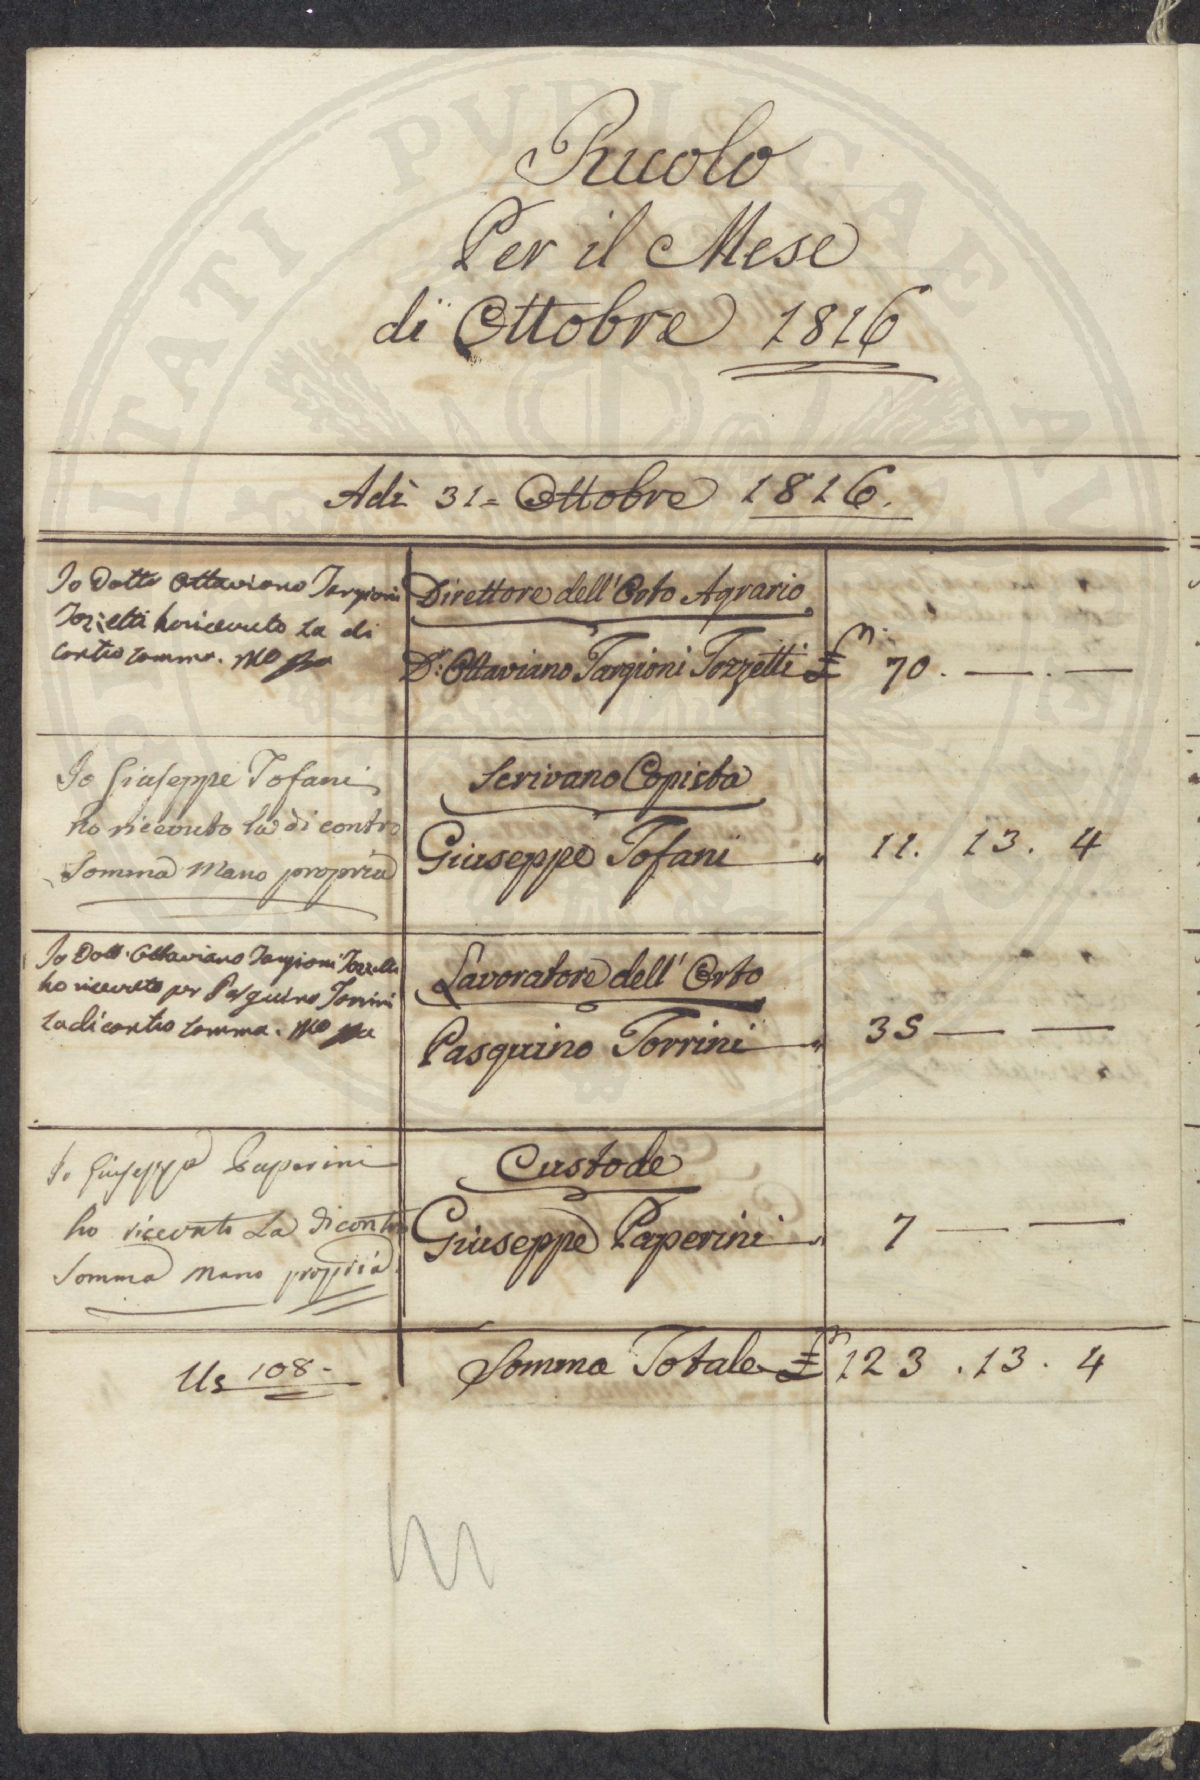 Ruolo
Per il Mese
di Ottobre 1816
Adì 31= Ottobre 1816.
Io Dotto Ottaviano Targioni
Tozzetti ho ricevuto la di
contro somma. Mo pa
Direttore dell'Orto Agrario
Dr. Ottaviano Targioni Tozzetti £ 70. — . —
Io Giuseppe Tofani
ho ricevuto la di contro
Somma Mano propria
Scrivano Copista
Giuseppe Tofani " 11. 13. 4
Io Dott. Ottaviano Targioni Tozzetti
ho ricevuto per Pasquino Torrini
la di contro somma. Mo pa
Lavoratore dell'Orto
Pasquino Torrini " 35 — —
Io Giuseppe Paperini
ho ricevuto La di contro
Somma Mano propria.
Custode
Giuseppe Paperini " 7 — —
108-
Somma Totale £ 123. 13. 4
PUBLICAE